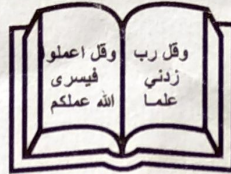 وقل رب
زدني
علما
وقل اعملوا
فيسرى
الله عملكم